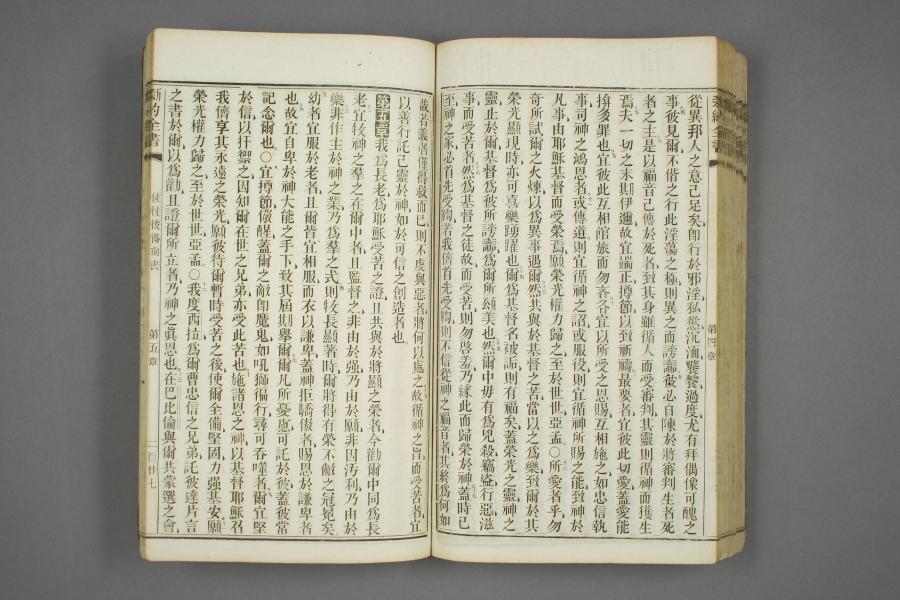 從異邦人之意已足矣、卽行於邪淫、私慾、沉湎、饕餮過度、尤有拜偶像可醜之
事、彼見爾不偕之行此淫蕩之極、則異之而謗讟、彼必自陳於將審判生者死
者之主、是以福音已傳於死者、致其身雖循人而受審判、其靈則循神而獲生
焉、夫一切之末期伊邇、故宜端正撙節以致祈禱、最要者、宜彼此切愛、蓋愛能
揜多罪也、宜彼此互相館旅而勿吝、各宜以所受之恩賜、互相施之、如忠信執
事、司神之鴻恩者、或傳道則宜循神之詔、或服役則宜循神所賜之能、致神於
凡事由耶穌基督而受榮焉、願榮光權力歸之、至於世世、亞孟、○所愛者乎、勿
奇所試爾之火煉、以爲異事遇爾、然共與於基督之苦、當以之爲樂、致爾於其
榮光顯現時、亦可喜樂踴躍也、爾爲基督名被詬、則有福矣、蓋榮光之靈、神之
靈、止於爾、基督爲彼所謗讟、爲爾所頌美也、然爾中毋有爲兇殺竊盜行惡濫
事而受苦者、然爲基督之徒故而受苦、則勿啓羞、乃緣此而歸榮於神、蓋時已
至、神之家必首先受鞫、若我儕首先受鞫、則不信從神之福音者、其終爲何如
哉、若義者僅得救而已、則不虔與惡者將何以處之、故循神之旨而受苦者、宜
以善行託己靈於神、如於可信之創造者也、
第五章 我爲長老、爲耶穌受苦之證、且共與於將顯之榮者、今勸爾中同爲長
老、宜牧神之羣之在爾中者、且監督之、非由於强、乃由於願、非因汚利、乃由於
樂、非作主於神之業、乃爲羣之式、則牧長顯著時、爾將得有榮不敝之冠冕矣、
幼者宜服於老者、且爾皆宜相服而衣以謙卑、蓋神拒驕傲者、賜恩於謙卑者
也、故宜自卑於神大能之手下、致其屆期擧爾、爾凡所憂慮、可託於彼、蓋彼當
記念爾也、○宜撙節儆醒、蓋爾之敵卽魔鬼、如吼獅徧行、尋可吞噬者、爾宜堅
於信以扞禦之、因知爾在世之兄弟、亦受此苦也、施諸恩之神、以基督耶穌召
我儕享其永遠之榮光、願彼待爾暫時受苦之後、使爾全備堅固力强基安、願
榮光權力歸之、至於世世、亞孟、○我度西拉爲爾曹忠信之兄弟、託彼達片言
之書於爾、以爲勸、且證爾所立者、乃神之眞恩也、在巴比倫與爾共蒙選之會、
新約全書
使徒彼得前書
第五章
一百廿七
第四章